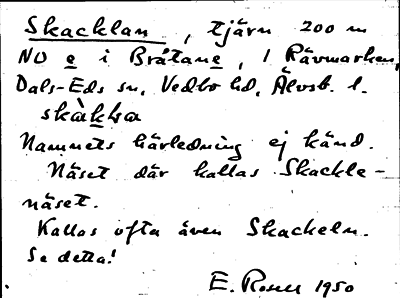 Skacklan, tjärn 200 m
NO e i Bråtane, i Rävmarken,
Dals-Eds sn, Vedbo hd, Älvsb. l.
skàkka
Namnets härledning ej känd.
Näset där kallas Skackle-
näset.
Kallas ofta även Skackeln.
Se detta!
E. Rosell 1950